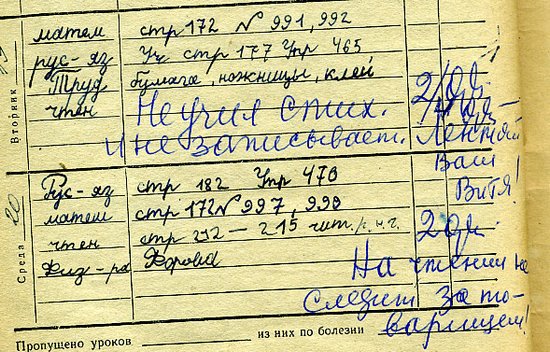 Вторник 19
матем стр 172 № 991, 992
рус-яз Уч стр 177 Упр 465
Труд бумага, ножницы, клей
чтен Не учил стих.
И не записывает.
2/
Лентяй
Ваш
Витя!
Среда 20
Рус-яз стр 182 Упр 470
матем стр 172 № 997, 998
чтен стр 212 – 215 чит.
Физ-ра Форма
2
На чтении не
следит за то-
варищем!
Пропущено уроков из них по болезни